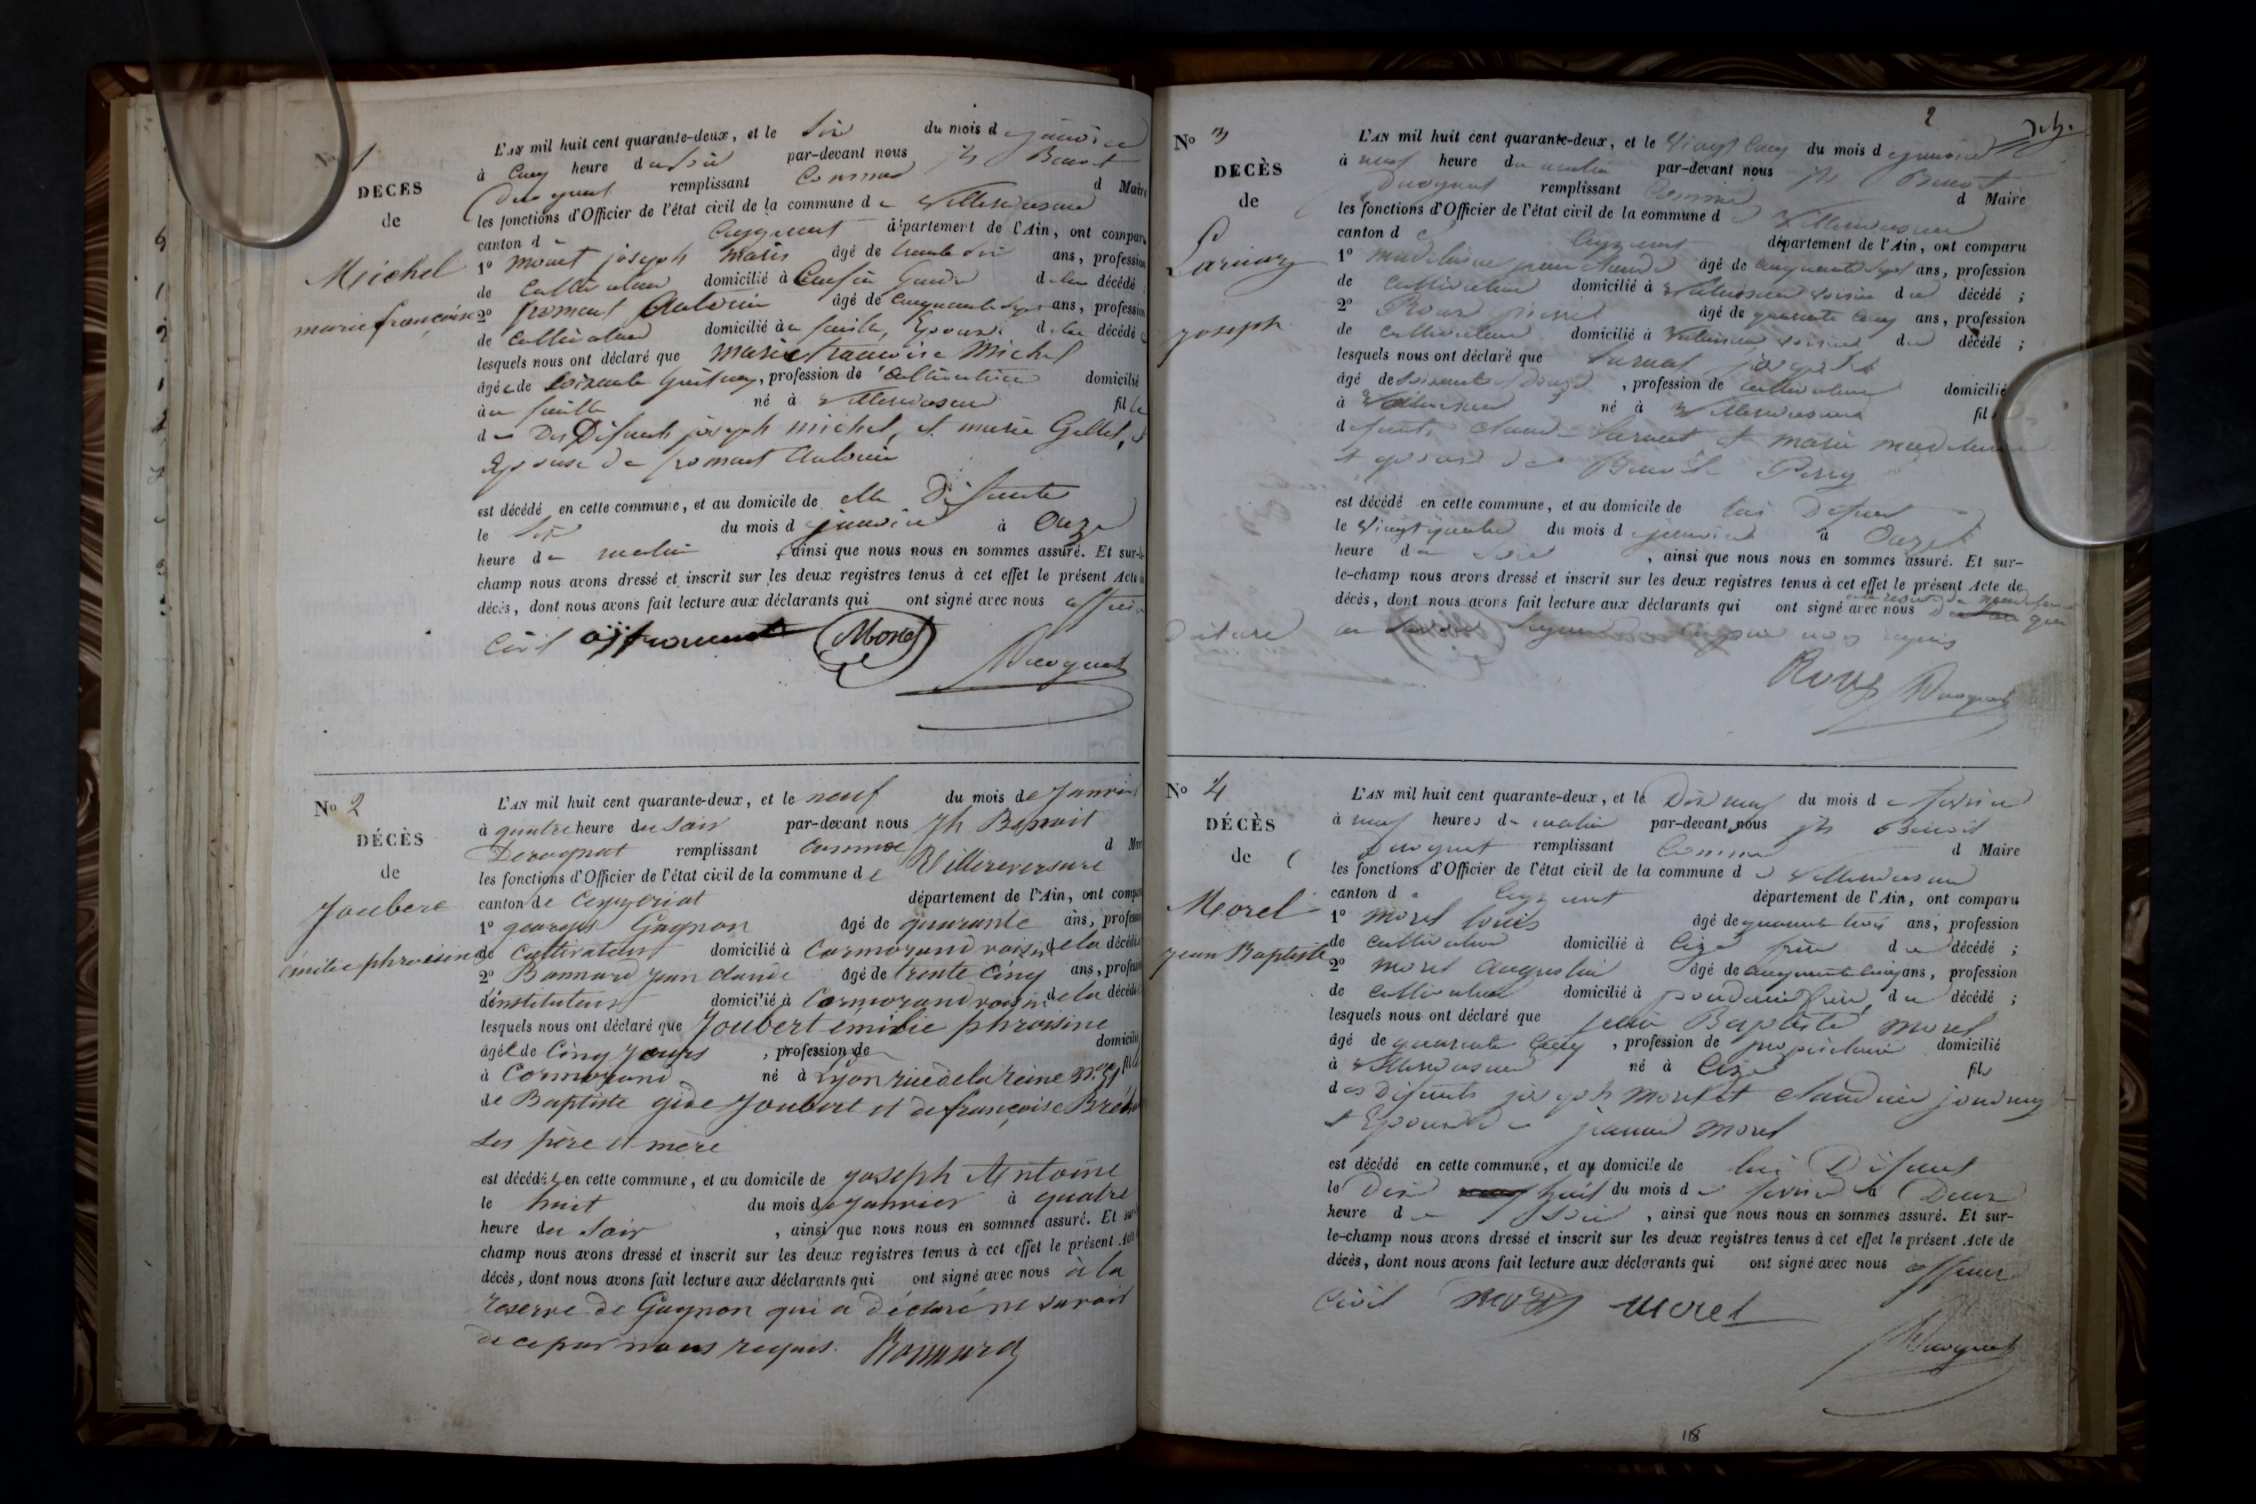 No 1
DÉCÈS
de
Michel
marie françoise
L'AN mil huit cent quarante-deux, et le Six du mois de janvier
à Cinq heure du soir par-devant nous jh Benoit
Ducognat remplissant comme d Maire
les fonctions d'Officier de l'état civil de la commune de Villereversure
canton de Ceyzeriat département de l'Ain, ont comparu
1o Moret joseph Marie âgé de trente six ans, profession
de Cultivateur domicilié à gendre de la décédé ;
2o froment Antoine âgé de Cinquante sept ans, profession
de Cultivateur domicilié à Epoux de la décédé
lesquels nous ont déclaré que Marie françoise Michel
âgée de Soixante, profession de Cultivatrice domicilié
à né à Villereversure fille
de Des Défunts joseph michel, et marie Gillet, et
Epouse de froment Antoine
est décédé en cette commune, et au domicile de elle Défunte
le Six du mois de janvier à Onze
heure du matin, ainsi que nous nous en sommes assuré. Et sur-le-
champ nous avons dressé et inscrit sur les deux registres tenus à cet effet le présent Acte de
décès, dont nous avons fait lecture aux déclarants qui ont signé avec nous officier
Civil froment Moret
Ducognat
No 2
DÉCÈS
de
Joubert
émilie phroisine
L'AN mil huit cent quarante-deux, et le neuf du mois de Janvier
à quatre heure du soir par-devant nous Jh Benoit
Ducognat remplissant comme d Maire
les fonctions d'Officier de l'état civil de la commune de Villereversure
canton de Ceyzeriat département de l'Ain, ont comparu
1o georges Gagnon âgé de quarante ans, profession
de Cultivateur domicilié à Cormorand voisin de la décédé
2o Bonnard jean claude âgé de trente Cinq ans, profession
d'instituteur domicilié à Cormorand voisin de la décédé
lesquels nous ont déclaré que Joubert émilie phroisine
âgée de Cinq Jours, profession de domicilié
à Cormorand né à Lyon rue de la Reine No 51 fille
de Baptiste Joubert et de françoise
Ses père et mère
est décédée en cette commune, et au domicile de joseph Antoine
le huit du mois de Janvier à quatre
heure du Soir, ainsi que nous nous en sommes assuré. Et sur-
champ nous avons dressé et inscrit sur les deux registres tenus à cet effet le présent Acte
décès, dont nous avons fait lecture aux déclarants qui ont signé avec nous à la
reserve de Gagnon qui a déclaré ne savoir
de ce par nous requis. Bonnard
2
No 3
DÉCÈS
de
Larnaz
joseph
L'AN mil huit cent quarante-deux, et le Vingt Cinq du mois de janvier
à neuf heure du matin par-devant nous jh Benoit
Ducognat remplissant Comme d Maire
les fonctions d'Officier de l'état civil de la commune d Villereversure
canton d Ceyzeriat département de l'Ain, ont comparu
1o âgé de Cinquante Sept ans, profession
de Cultivateur domicilié à Villereversure voisin du décédé ;
2o Roux pierre âgé de quarante Cinq ans, profession
de Cultivateur domicilié à Villereversure voisin du décédé ;
lesquels nous ont déclaré que joseph
âgé de Soixante Douze, profession de Cultivateur domicilié
à Villereversure né à Villereversure fils
défunts Claude et marie
et époux de Benoite Perry
est décédé en cette commune, et au domicile de lui Défunt
le Vingt quatre du mois de janvier à Onze
heure du soir, ainsi que nous nous en sommes assuré. Et sur-
le-champ nous avons dressé et inscrit sur les deux registres tenus à cet effet le présent Acte de
décès, dont nous avons fait lecture aux déclarants qui ont signé avec nous
par nous requis
Roux Ducognat
No 4
DÉCÈS
de
Morel
jean Baptiste
L'AN mil huit cent quarante-deux, et le Dix neuf du mois de fevrier
à neuf heures du matin par-devant nous jh Benoit
Ducognat remplissant Comme d Maire
les fonctions d'Officier de l'état civil de la commune d Villereversure
canton de Ceyzeriat département de l'Ain, ont comparu
1o Morel Louis âgé de quarante trois ans, profession
de Cultivateur domicilié à Cize frère du décédé ;
2o Morel Augustin âgé de Cinquante Cinq ans, profession
de Cultivateur domicilié à frère du décédé ;
lesquels nous ont déclaré que jean Baptiste Morel
âgé de quarante Cinq, profession de propriétaire domicilié
à Villereversure né à Cize fils
des Défunts joseph Morel et Claudine
et Epoux de jeanne Morel
est décédé en cette commune, et au domicile de lui Défunt
le Dix huit du mois de fevrier à Deux
heure du Soir, ainsi que nous nous en sommes assuré. Et sur-
le-champ nous avons dressé et inscrit sur les deux registres tenus à cet effet le présent Acte de
décès, dont nous avons fait lecture aux déclarants qui ont signé avec nous officier
Civil Morel Morel
Ducognat
118